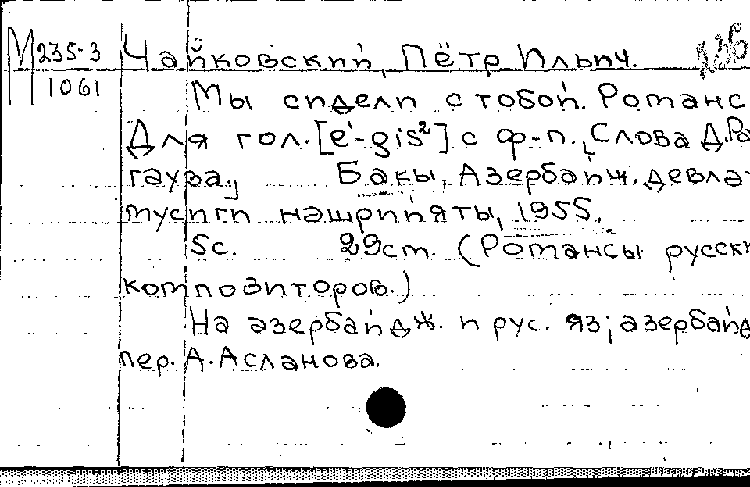 М 235-3 Чайковский, Пётр Ильич.
1061 Мы сидели с тобой. Романс
Для гол. [e¹-gis²] с ф-п., Слова Д. Ра
гауза., Бакы, Азербайж. девла-
мусиги нәшрийяты, 1955.
5с. 29см. (Романсы русски
композиторов.)
На азербайдж. и рус. яз; азербайд
пер. А. Асланова.